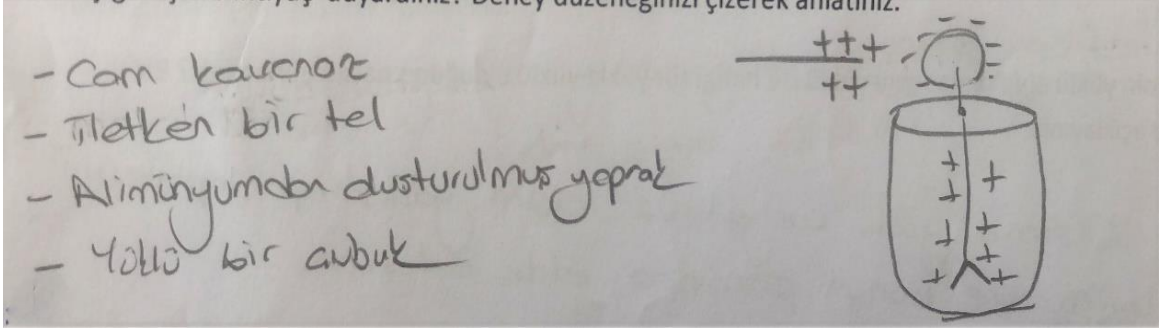 duyardınız? Deney düzeneğinizi çizerek anlatınız.
- Cam kavanoz
- İletken bir tel
- Aliminyumdan dusturulmuş yaprak
- Yüklü bir çubuk
+++
++